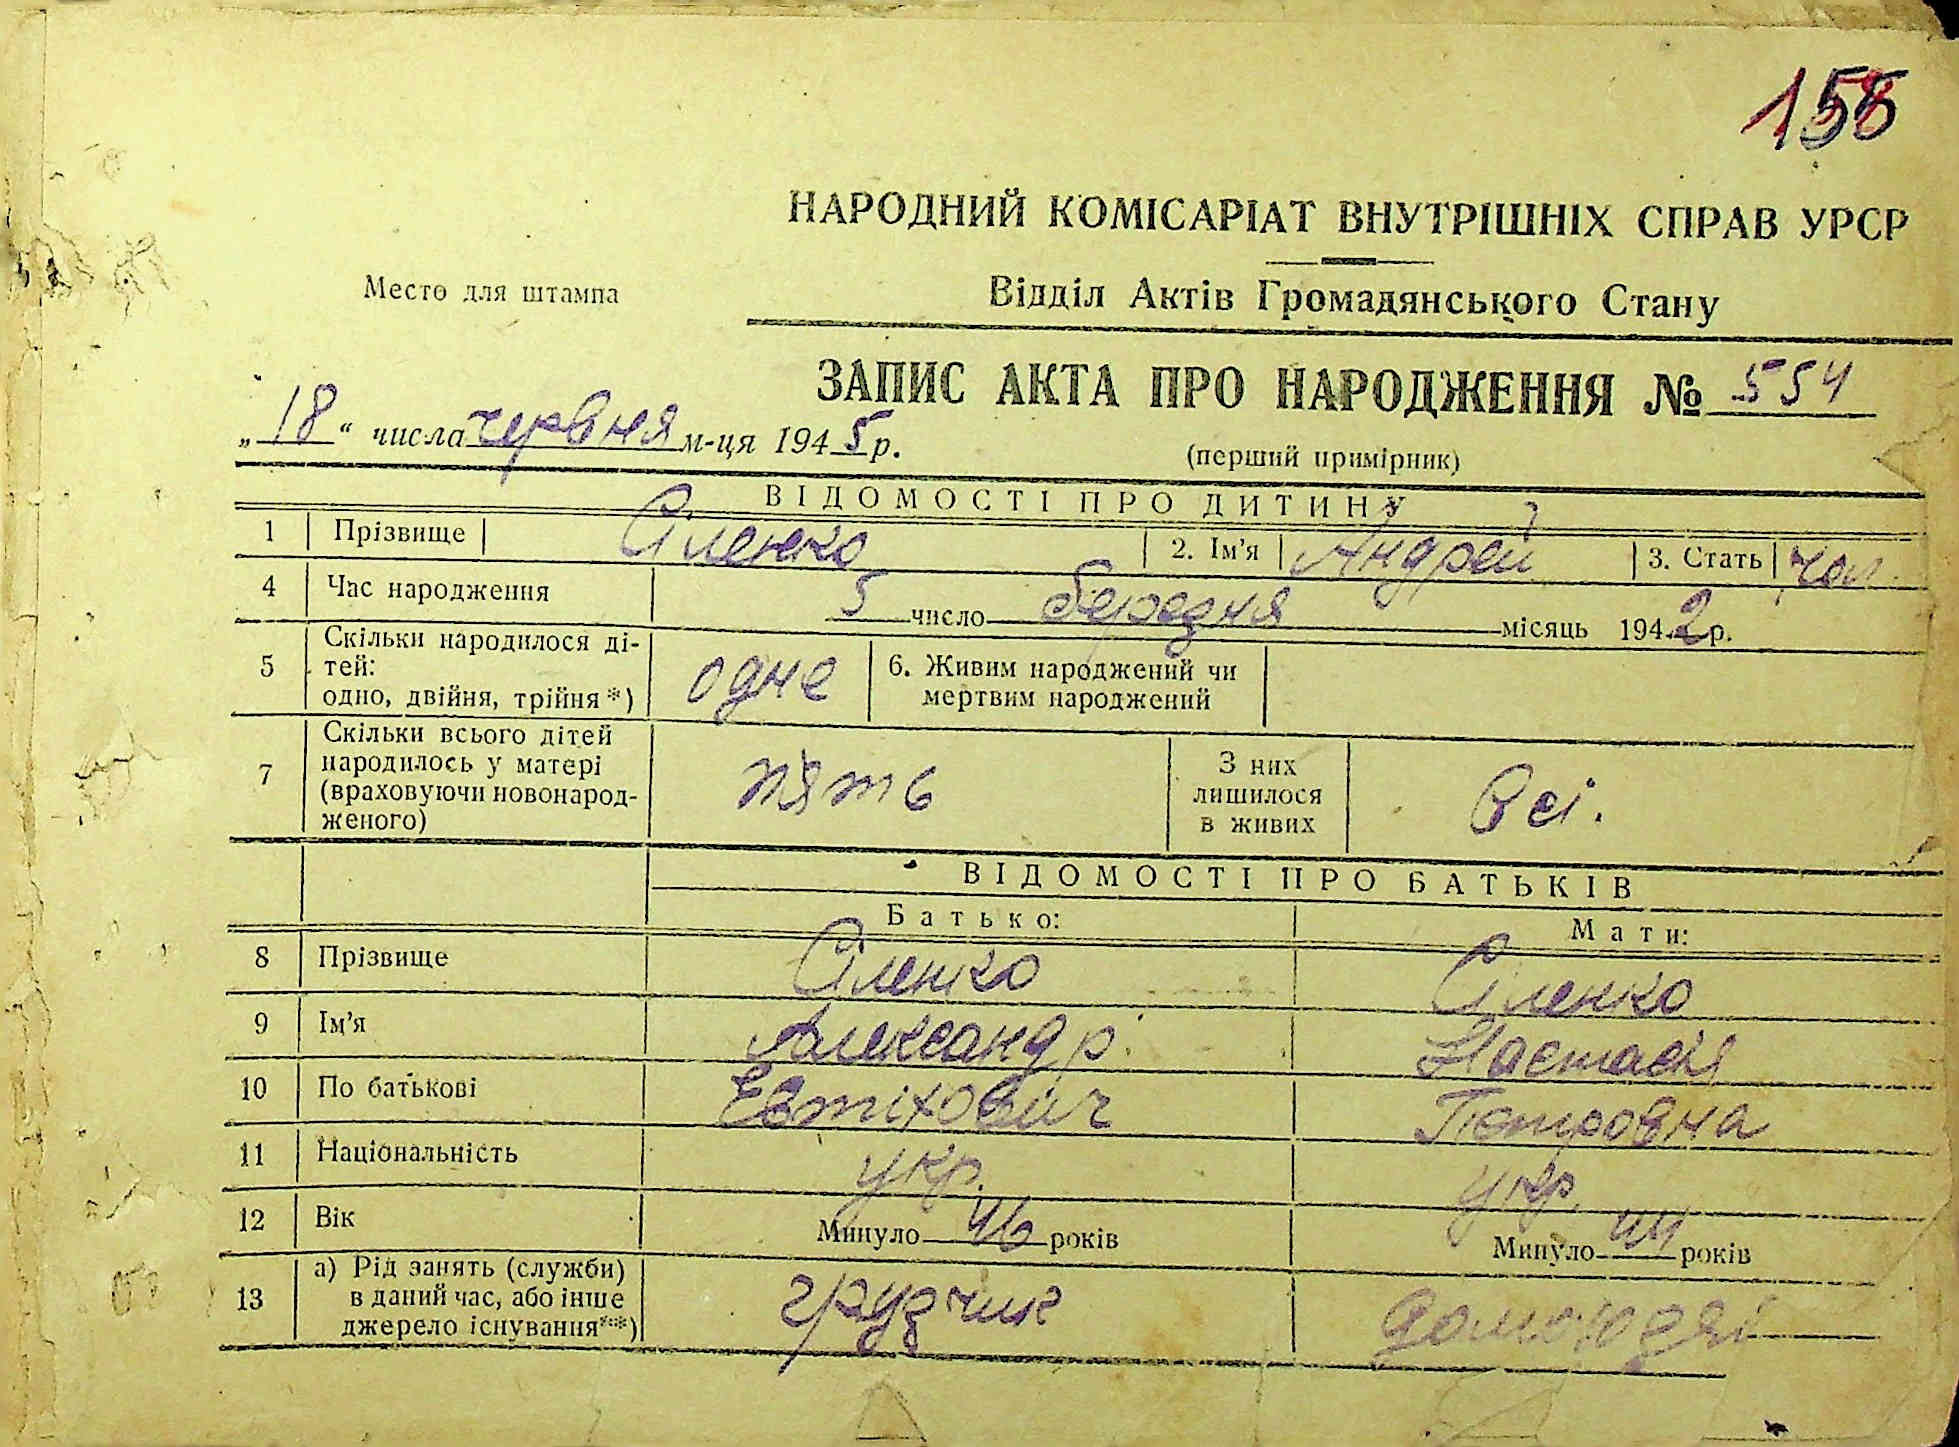 156
НАРОДНИЙ КОМІСАРІАТ ВНУТРІШНІХ СПРАВ УРСР
Место для штампа
Відділ Актів Громадянського Стану
ЗАПИС АКТА ПРО НАРОДЖЕННЯ № 554
„18“ числа червня м-ця 1945 р.
(перший примірник)
ВІДОМОСТІ ПРО ДИТИНУ
1 Прізвище Сіленко 2. Ім'я Андрей 3. Стать чол.
4 Час народження 5 число березня місяць 1942 р.
5 Скільки народилося ді-
тей:
одно, двійня, трійня*) одне 6. Живим народжений чи
мертвим народжений
7 Скільки всього дітей
народилось у матері
(враховуючи новонарод-
женого) п'ять З них
лишилося
в живих Всі.
ВІДОМОСТІ ПРО БАТЬКІВ
Батько: Мати:
8 Прізвище Сіленко Сіленко
9 Ім'я Александр Настасія
10 По батькові Євтіхович Петровна
11 Національність укр. укр.
12 Вік Минуло 46 років Минуло 44 років
13 а) Рід занять (служби)
в даний час, або інше
джерело існування**) грузчик